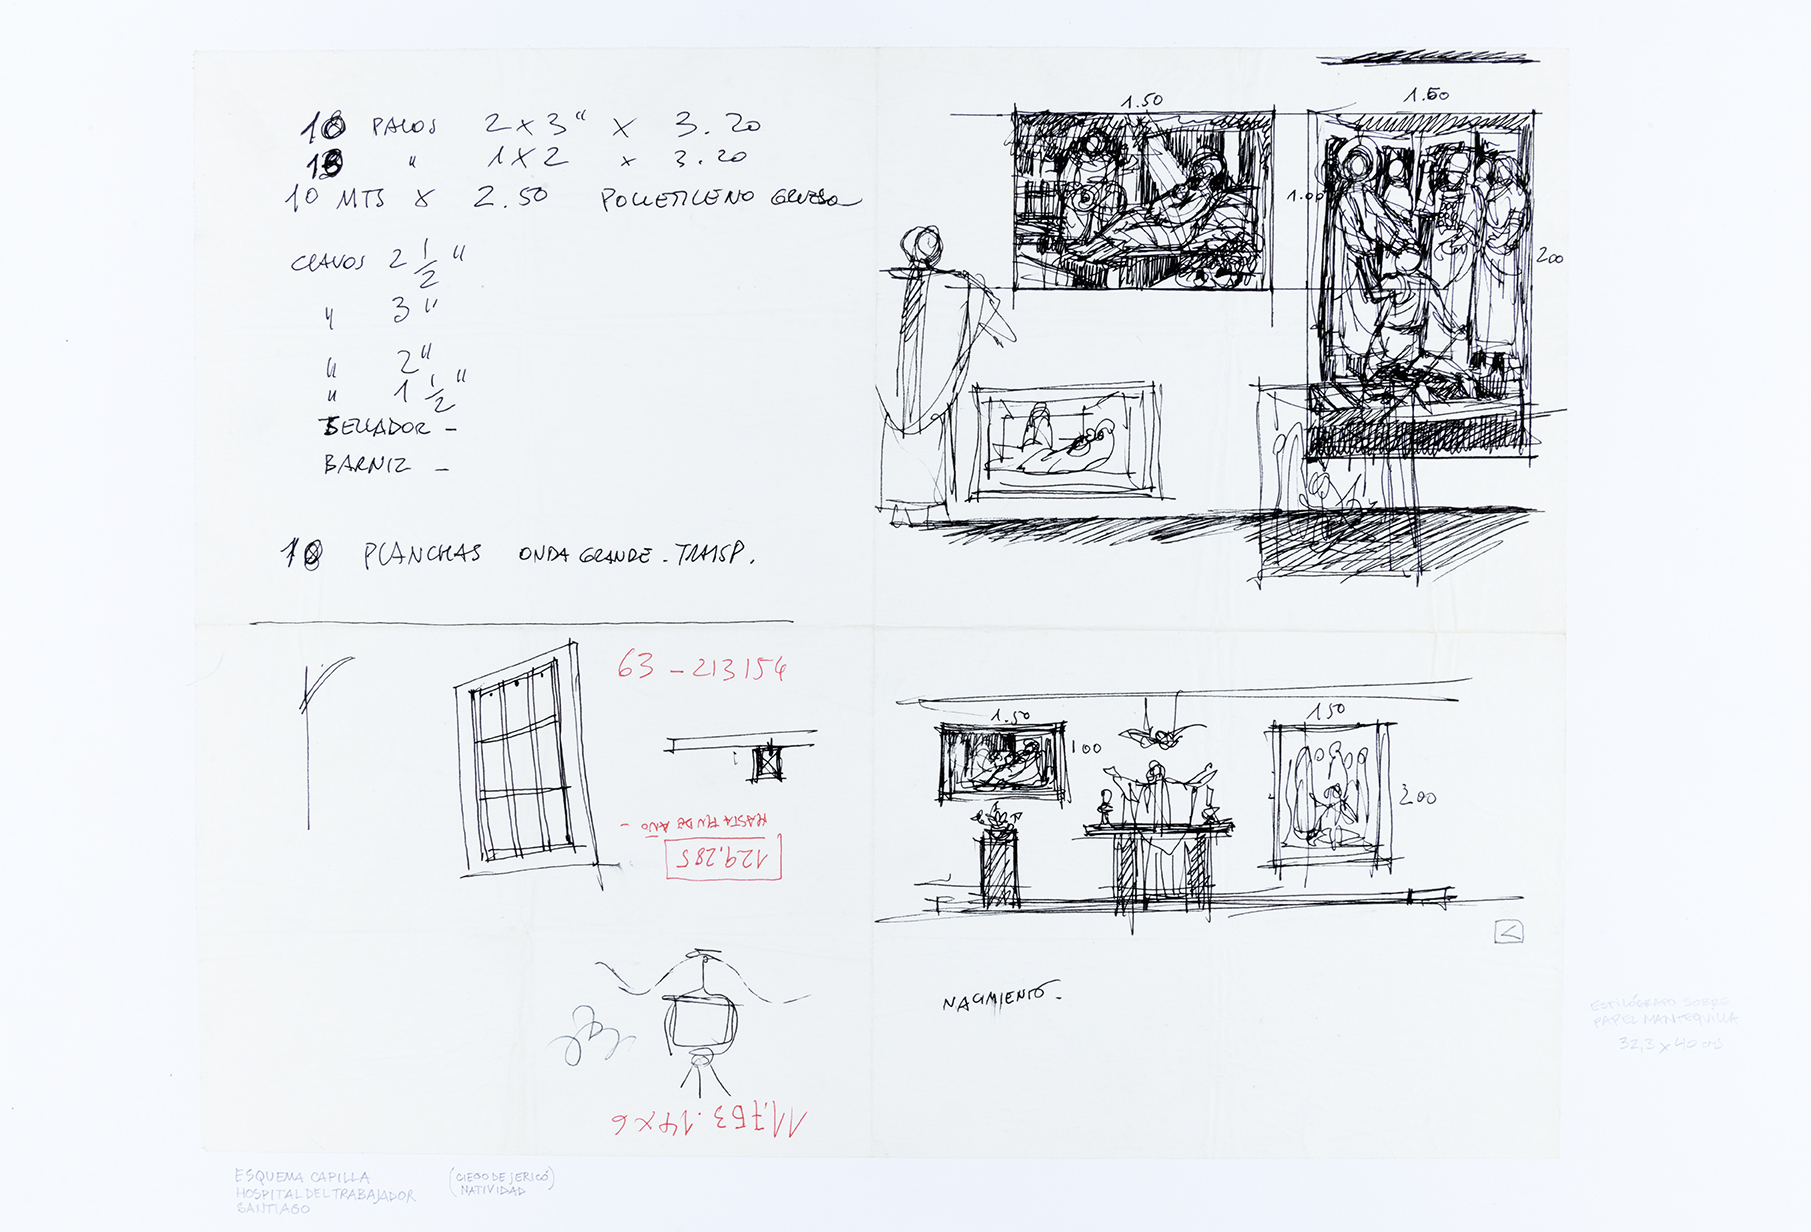 10 PALOS 2 x 3" x 3.20
" 1 X 2 x 3.20
10 MTS X 2.50 POLIETILENO GRUESO
CLAVOS 2 1/2 "
" 3 "
" 2"
" 1 1/2 "
SELLADOR -
BARNIZ -
10 PLANCHAS ONDA GRANDE - TRASP.
1.50
1.50
1.00
200
63 - 213154
HASTA FIN DE AÑO -
129.285
11.753.14 x 6
1.50
100
150
200
NACIMIENTO -
ESTILÓGRAFO SOBRE
PAPEL MANTEQUILLA
32,3 x 40 cms
ESQUEMA CAPILLA
HOSPITAL DEL TRABAJADOR
SANTIAGO
(CIEGO DE JERICÓ)
NATIVIDAD